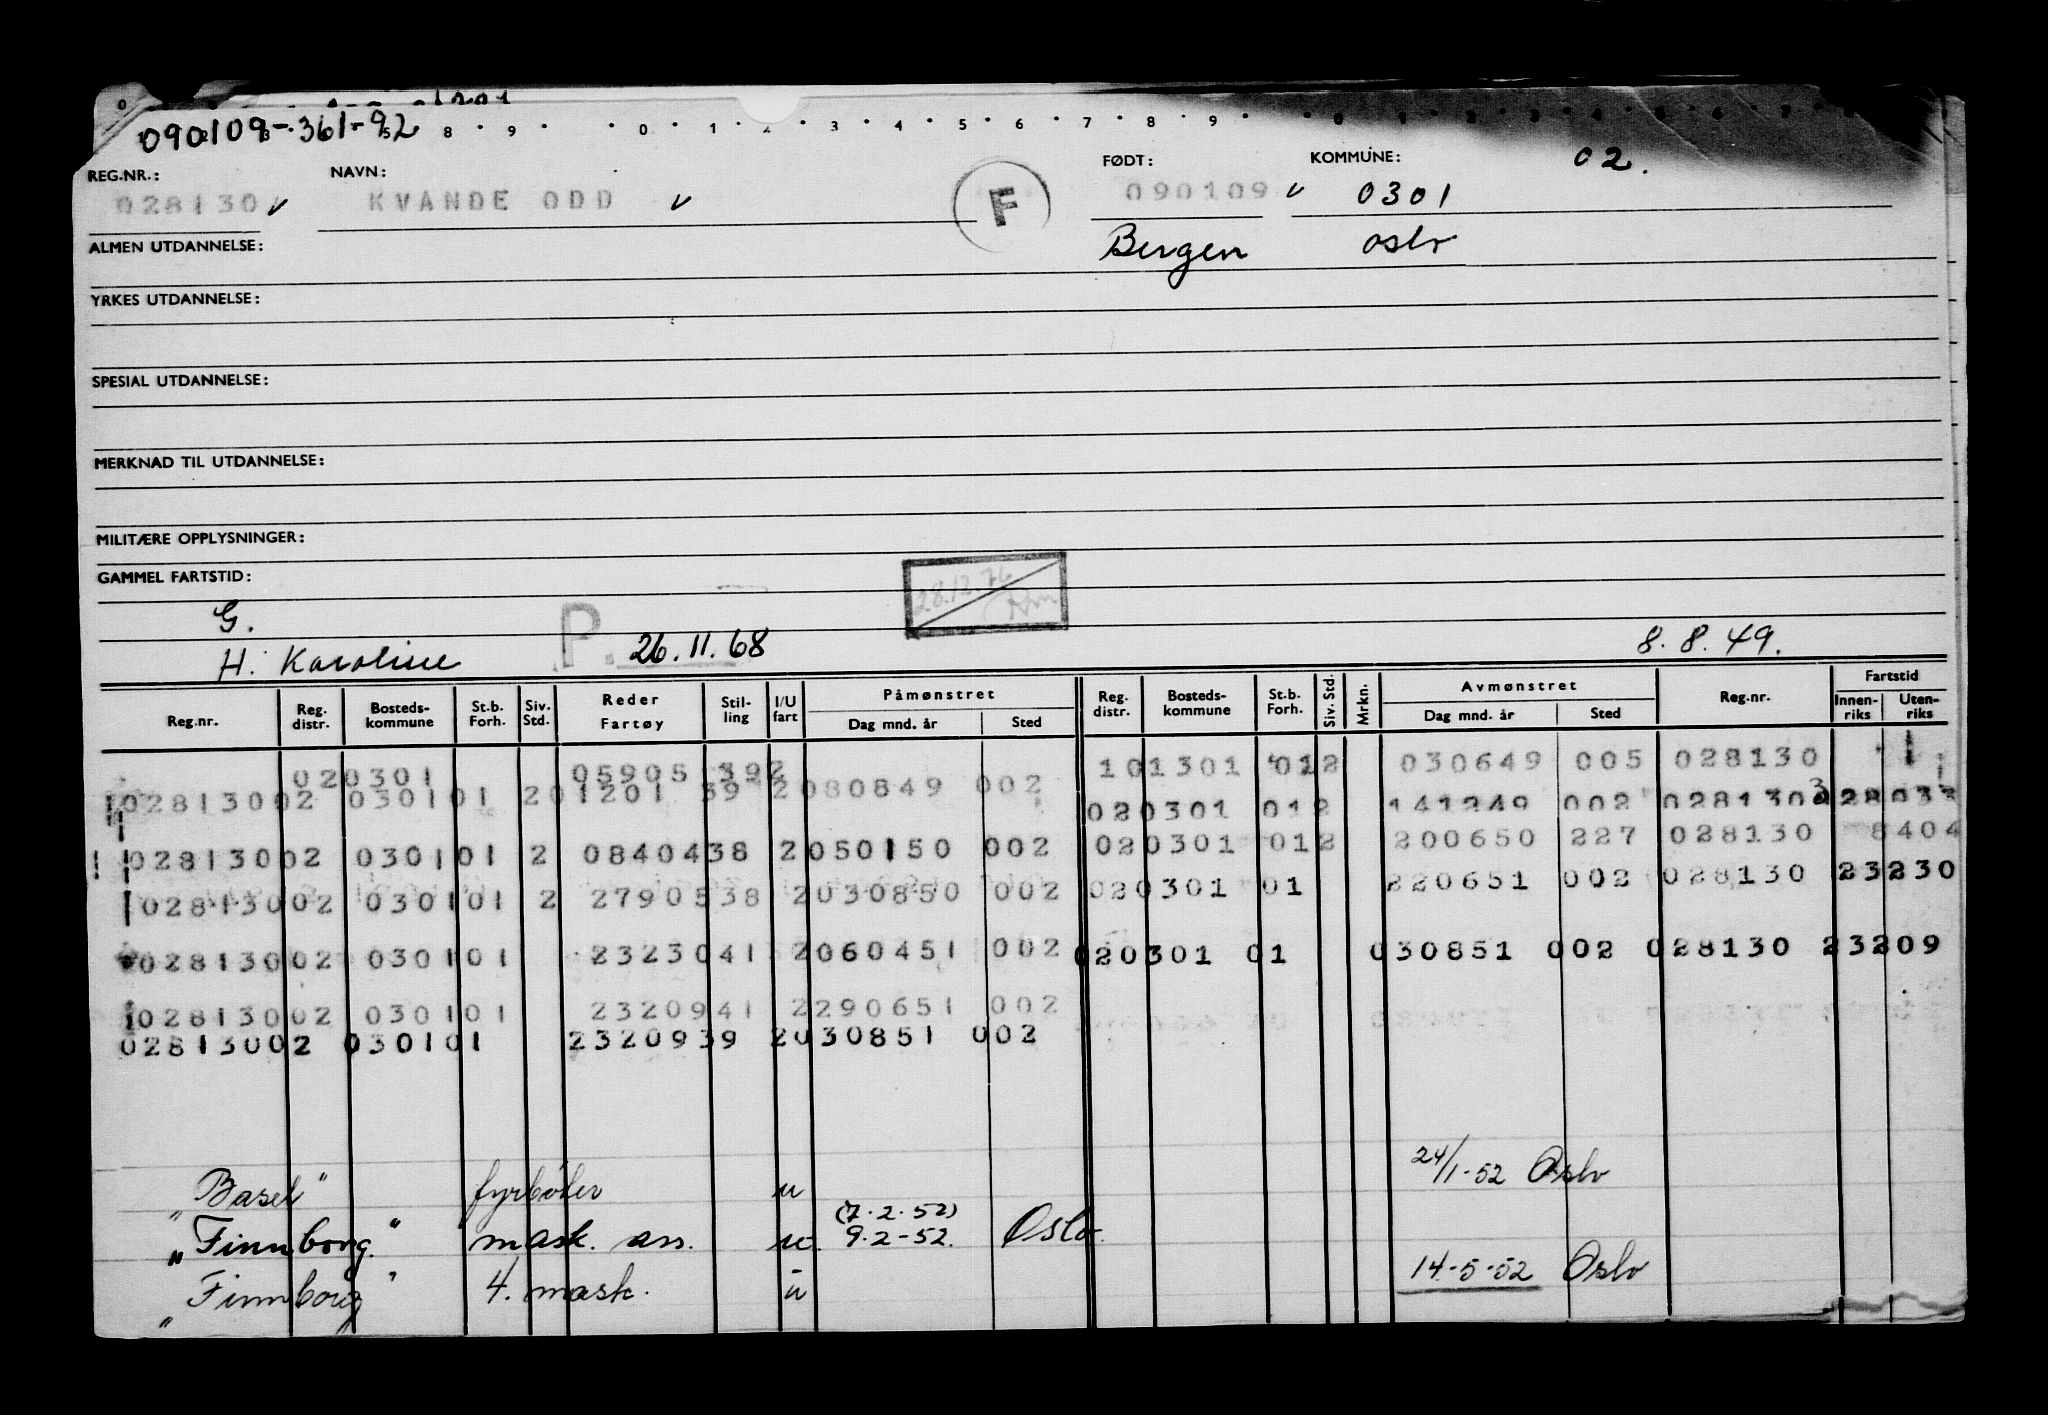 090109-361-92
8 . 9 . . 0 . 1 . 2 . 3 . 4 . 5 . 6 . 7 . 8 . 9 . . 0 . 1 . 2 . 3 . 4 . 5 . 6 . 7
REG.NR.: NAVN: FØDT: KOMMUNE: 02.
028130 v KVANDE ODD v F 090109 v 0301
ALMEN UTDANNELSE: Bergen oslo
YRKES UTDANNELSE:
SPESIAL UTDANNELSE:
MERKNAD TIL UTDANNELSE:
MILITÆRE OPPLYSNINGER:
GAMMEL FARTSTID: 28.12.76
G.
H. Karoline P. 26.11.68 8.8.49.
Reg.nr. Reg. distr. Bosteds-kommune St.b. Forh. Siv. Std. Reder Fartøy Stil-ling I/U fart Påmønstret Dag mnd. år Sted Reg. distr. Bosteds-kommune St.b. Forh. Siv. Std. Mrkn. Avmønstret Dag mnd. år Sted Reg.nr. Fartstid Innen-riks Uten-riks
020301 05905 392 101301 012 030649 005 028130
02813002 030101 201201 39 2080849 002 020301 012 141249 002 028130
02813002 030101 2 0840438 2050150 002 020301 012 200650 227 028130 8404
02813002 030101 2 2790538 2030850 002 020301 01 220651 002 028130 23230
02813002 030101 2323041 2060451 002 020301 01 030851 002 028130 23209
02813002 030101 2320941 2290651 002
02813002 030101 2320939 2030851 002
"Basel" fyrbøter u 24/1-52 Oslo
(7.2.52)
"Finnborg" mask. ass. u. 9.2-52. Oslo.
"Finnborg" 4. mask. u 14-5-52 Oslo